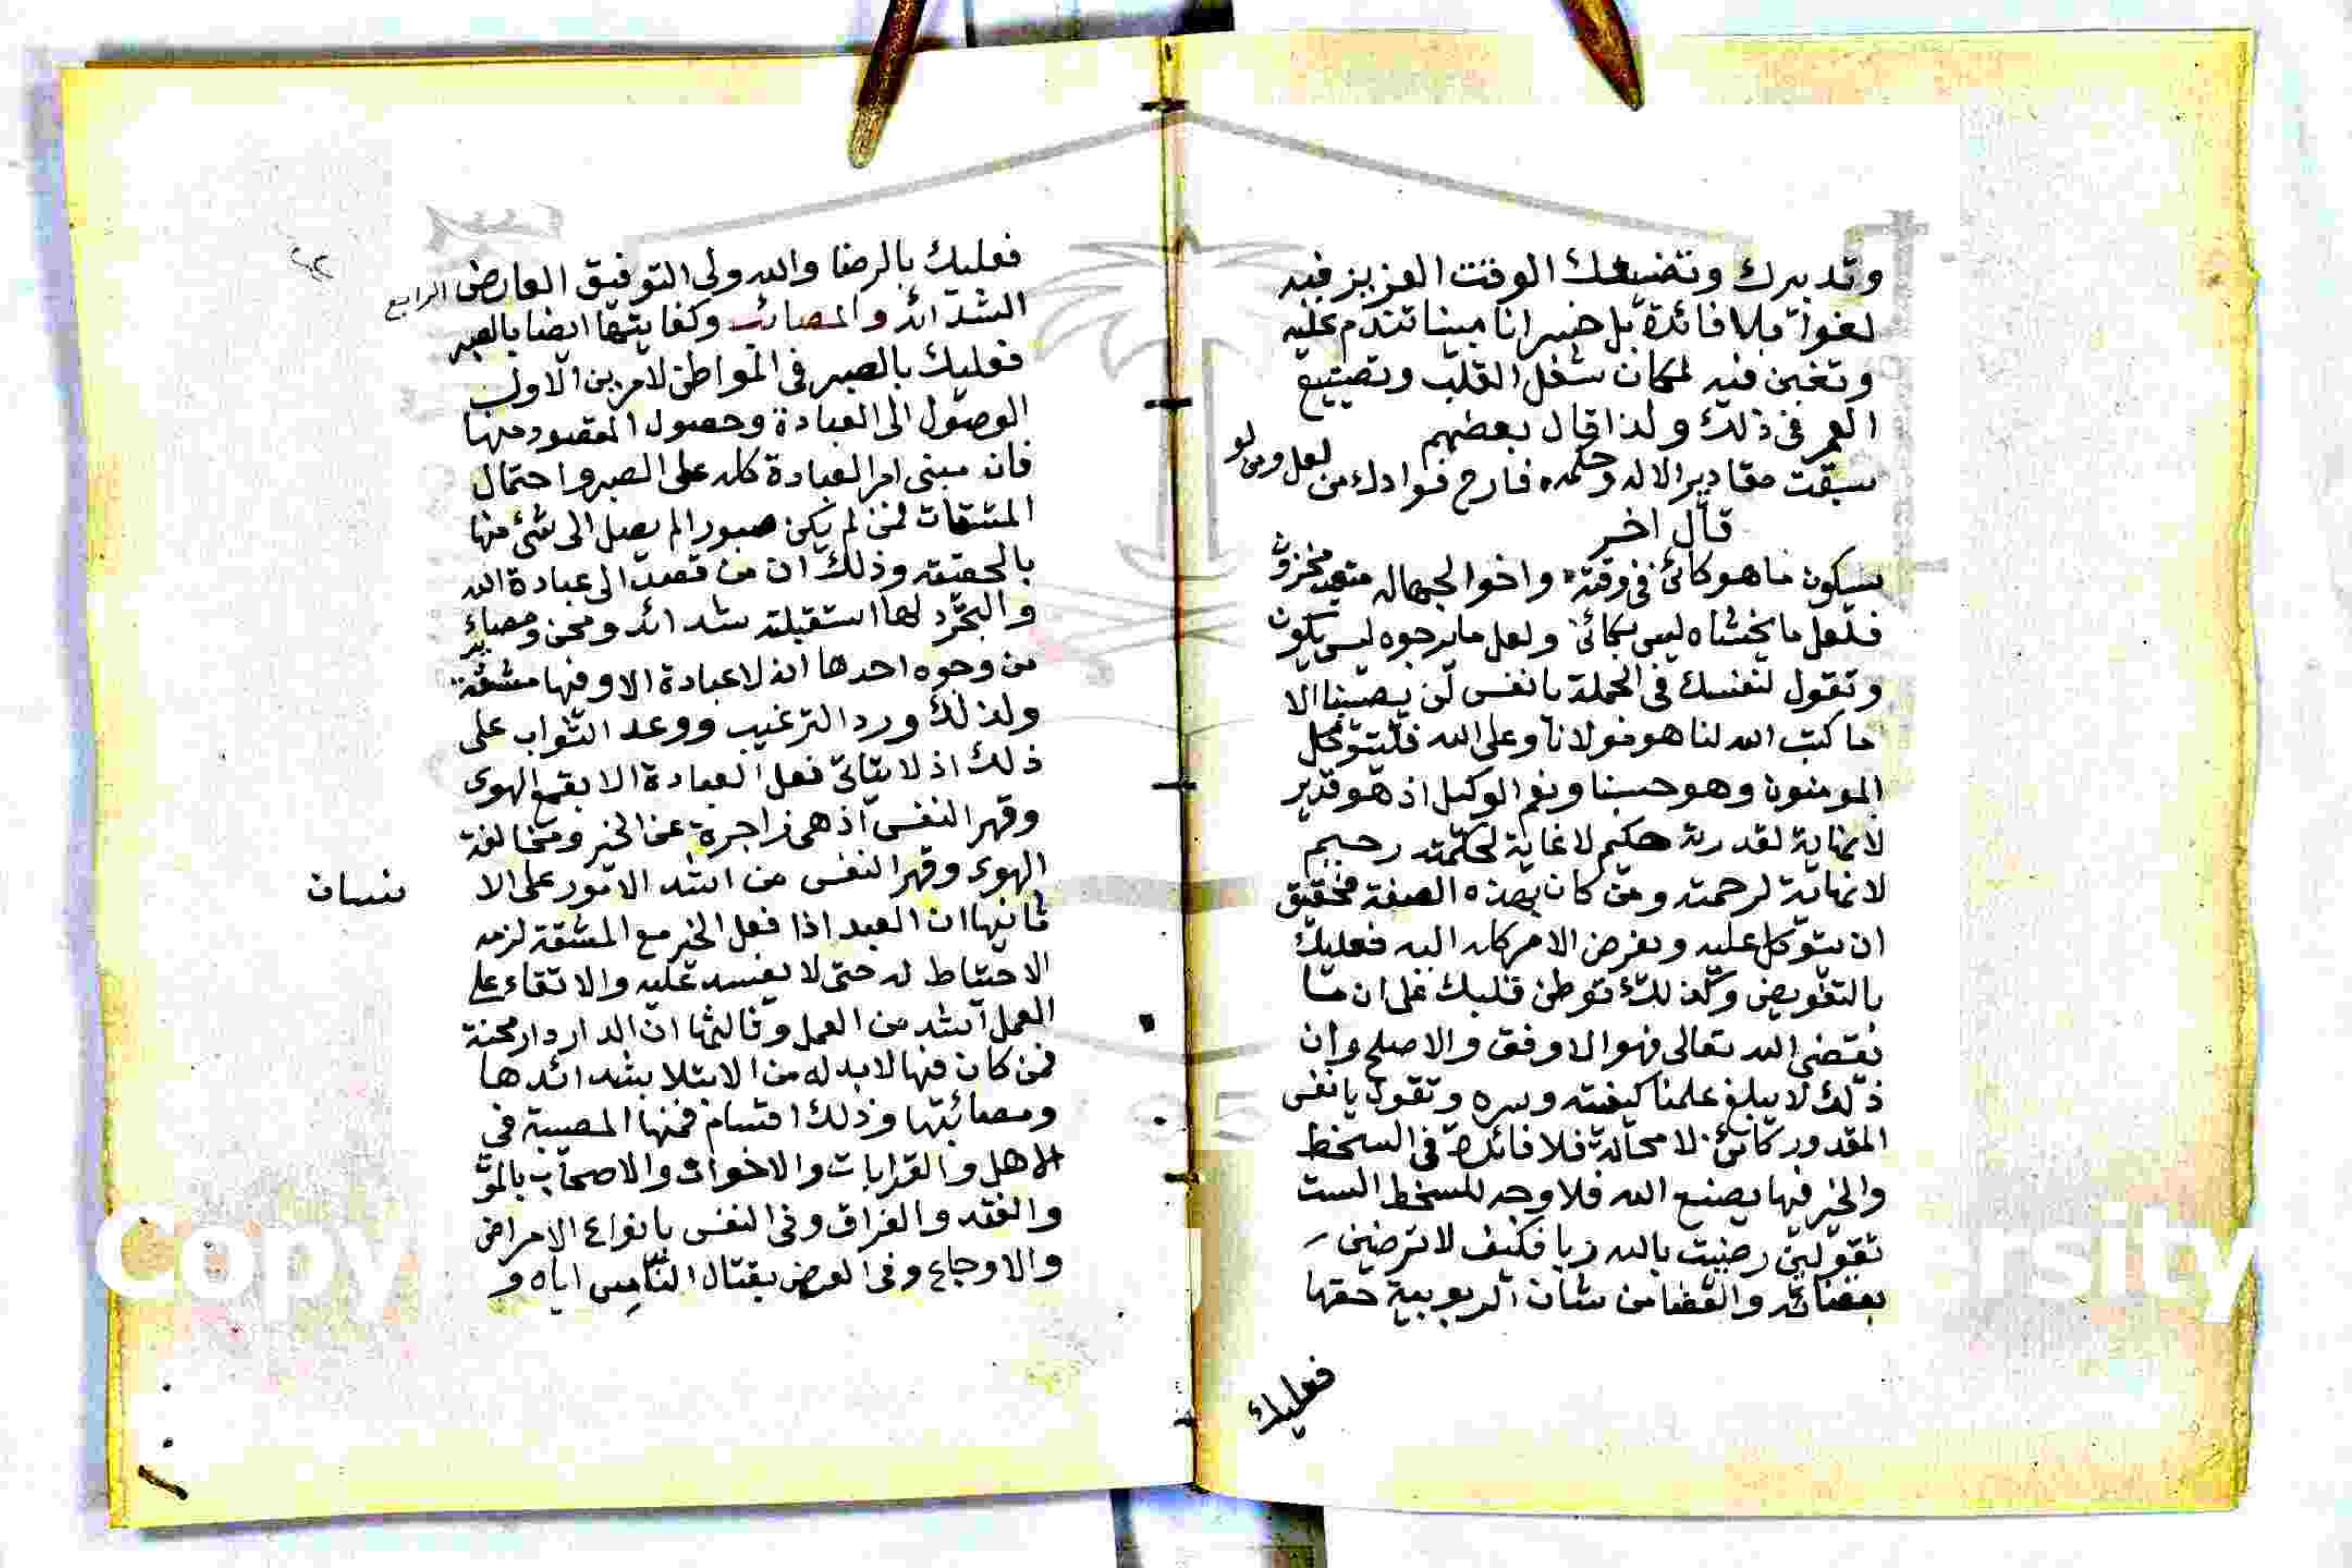 وتدبيرك وتضييعك الوقت العزيز فيه
لغوا بلا فائدة بل خسرانا مبينا تندم عليه
وتغبن فيه لمكان شغل القلب وتضييع
العمر في ذلك ولذا قال بعضهم
سبقت مقادير الاله وحكمه فارح فوادك من لعل ومن لو
قال اخر
سيكون ما هو كائن في وقته واخو الجهاله متعب محزون
فلعل ما يخشاه ليس بكائن ولعل ما يرجوه ليس يكون
وتقول لنفسك في الجملة يا نفس لن يصيبنا الا
ما كتب الله لنا هو مولانا وعلى الله فليتوكل
المومنون وهو حسبنا ونعم الوكيل اذ هو قدير
لا نهاية لقدرته حكيم لا غاية لحكمته رحيم
لا نهاية لرحمته ومن كان بهذه الصفة فحقيق
ان يتوكل عليه ويفوض الامر كله اليه فعليك
بالتفويض وكذلك توطن قلبك على ان ما
يقتضي الله تعالى فهو الاوفق والاصلح وان
ذلك لا يبلغ علمنا كيفيته وسره وتقول يا نفس
المقدور كائن لا محالة فلا فائدة في السخط
والخير فيما يصنع الله فلا وجه للسخط الست
تقولين رضيت بالله ربا فكيف لا ترضين
بقضائه والقضا من شان الربوبية حقها
فعليك
فعليك بالرضا والله ولي التوفيق العارض الرابع
الشدائد والمصائب وكفايتها ايضا بالصبر
فعليك بالصبر في المواطن لامرين الاول
الوصول الى العبادة وحصول المقصود منها
فان مبنى امر العبادة كله على الصبر واحتمال
المشقات فمن لم يكن صبورا لم يصل الى شئ منها
بالحقيقه وذلك ان من قصد الى عبادة الله
والتجرد لها استقبلته شدائد ومحن ومصائب
من وجوه احدها انه لا عبادة الا وفيها مشقة
ولذلك ورد الترغيب ووعد الثواب على
ذلك اذ لا يتاتى فعل العبادة الا بقمع الهوى
وقهر النفس اذ هي زاجرة عن الخير ومخالفة
الهوى وقهر النفس من اشد الامور على الا
نسان
ثانيها ان العبد اذا فعل الخير مع المشقة لزمه
الاحتياط له حتى لا يفسد عليه والاتقاء على
العمل اشد من العمل وثالثها ان الدار دار محنة
فمن كان فيها لا بد له من الابتلا بشدائدها
ومصائبها وذلك اقسام فمنها المصيبة في
الاهل والقرابات والاخوان والاصحاب بالموت
والفقد والفراق وفي النفس بانواع الامراض
والاوجاع وفي العرض بقتال الناس اياه و